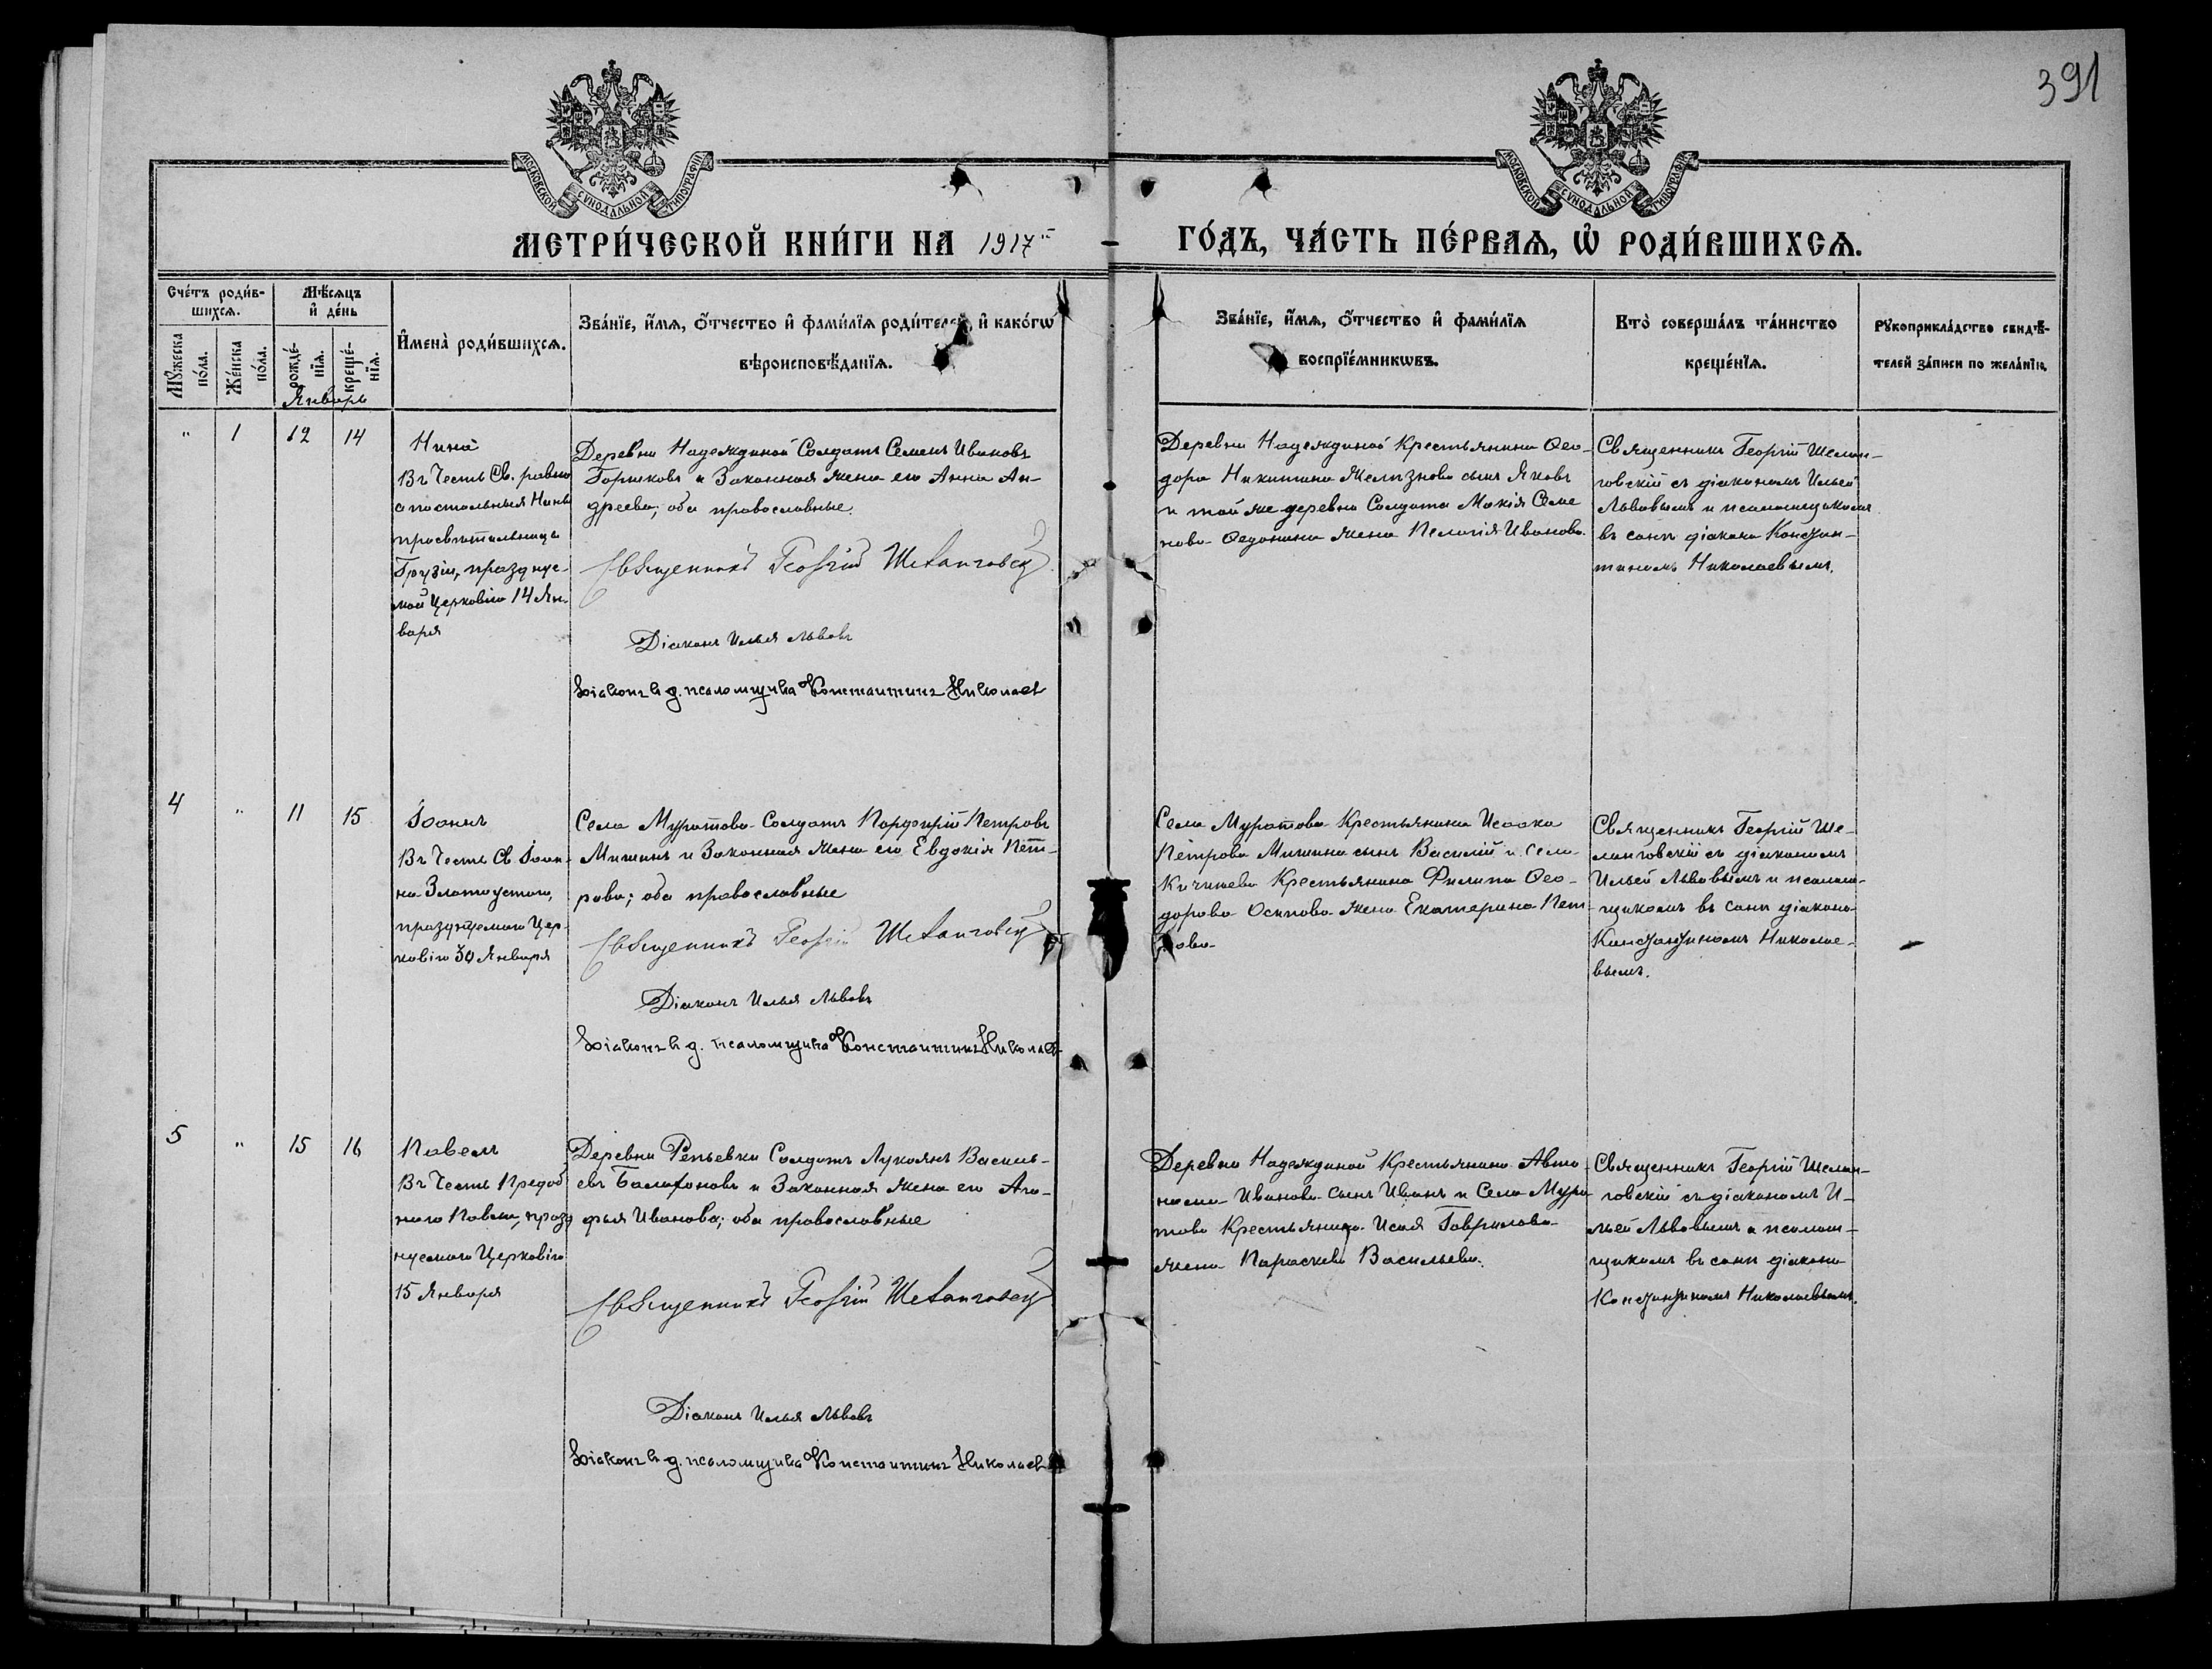 391
МОСКОВСКОЙ СѴНОДАЛЬНОЙ ТИПОГРАФІИ
МОСКОВСКОЙ СѴНОДАЛЬНОЙ ТИПОГРАФІИ
МЕТРИ́ЧЕСКОЙ КНИ́ГИ НА 1917й ГО́ДЪ, ЧА́СТЬ ПЕ́РВАЯ, Ѡ҆ РОДИ́ВШИХСѦ.
Сче́тъ роди́в-
шихсѧ.
Мꙋ́жеска по́ла.
Же́нска по́ла.
Мѣ́сѧцъ
и҆ де́нь
рожде́-
нїѧ.
креще́-
нїѧ.
И҆мена̀ роди́вшихсѧ.
Зва́нїе, и҆́мѧ, ѻ҆́тчество и҆ фами́лїѧ роди́телей, и҆ како́гѡ
вѣроисповѣ́данїѧ.
Зва́нїе, и҆́мѧ, ѻ҆́тчество и҆ фами́лїѧ
воспрїе́мникѡвъ.
Кто̀ соверша́лъ та́инство
креще́нїѧ.
Рꙋкоприкла́дство свидѣ́-
телей за́писи по жела́нїю.
Январь
" 1 12 14
Нина
Въ Честь Св. равно
апостольныя Нины
просвѣтительницы
Грузіи, празднуе-
мой Церковію 14 Ян-
варя
Деревни Надеждиной Солдатъ Семенъ Ивановъ
Горшковъ и Законная жена его Анна Ан-
дреева; оба православные.
Священникъ Георгій Шеланговскій
Діаконъ Илья Львовъ
Діаконъ н. д. псаломщика Константинъ Николаевъ
Деревни Надеждиной Крестьянина Ѳео-
дора Никитина Желѣзнова сынъ Яковъ
и той же деревни Солдата Мокія Семе
нова Ѳедонина жена Пелагія Иванова.
Священникъ Георгій Шелан-
говскій съ діакономъ Ильей
Львовымъ и псаломщикомъ
въ санѣ діакона Констан-
тиномъ Николаевымъ.
4 " 11 15
Іоаннъ
Въ Честь Св. Іоан-
на Златоустаго,
празднуемаго Цер-
ковію 30 Января
Села Муратова Солдатъ Порфирій Петровъ
Мишинъ и Законная жена его Евдокія Пет-
рова; оба православные
Священникъ Георгій Шеланговскій
Діаконъ Илья Львовъ
Діаконъ н. д. псаломщика Константинъ Николаевъ
Села Муратова Крестьянина Исаака
Петрова Мишина сынъ Василій и села
Кичинева Крестьянина Филипа Ѳео-
дорова Осипова жена Екатерина Пет
рова
Священникъ Георгій Ше-
ланговскій съ діакономъ
Ильей Львовымъ и псалом-
щикомъ въ санѣ діакона
Константиномъ Николае-
вымъ.
5 " 15 16
Павелъ
Въ Честь Препод
наго Павла, празд
нуемаго Церковію
15 Января
Деревни Репьевки Солдатъ Лукоянъ Василь-
евъ Балахоновъ и Законная жена его Ага-
фья Иванова; оба православные
Священникъ Георгій Шеланговскій
Діаконъ Илья Львовъ
Діаконъ н. д. псаломщика Константинъ Николаевъ
Деревни Надеждиной Крестьянина Авто-
нома Иванова сынъ Иванъ и Села Мура-
това Крестьянина Исая Гаврилова
жена Параскева Васильева.
Священникъ Георгій Шелан-
говскій съ діакономъ И-
льей Львовымъ и псалом-
щикомъ въ санѣ діакона
Константиномъ Николаевымъ.